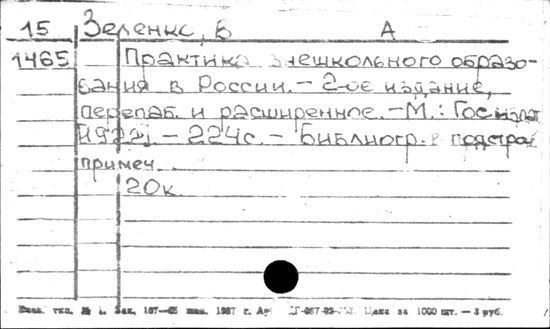 15 Зеленко, В А
1465 Практика внешкольного образо-
вания в России. – 2-ое издание,
перераб. и расширенное. – М.: Госиздат
[1923]. – 224с. – Библиогр. в подстроч
примеч.
20к.
тип. № 1. Зак. 1987 г. Цена за 1000 шт. — 3 руб.